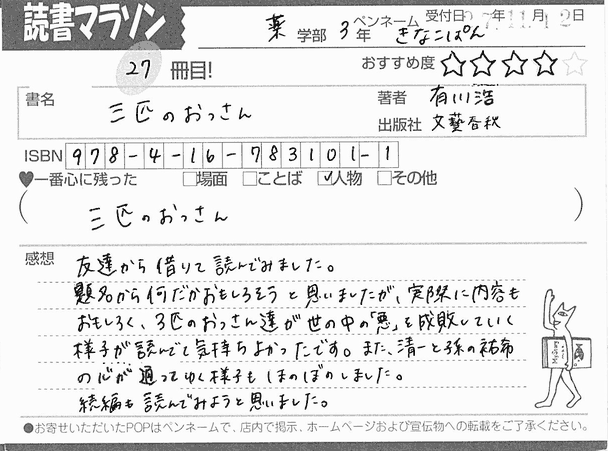 読書マラソン
薬 学部 3 年 ペンネーム きなこぱん 受付日 27年11月12日
27 冊目!
おすすめ度 ★★★★☆
書名 三匹のおっさん
著者 有川浩
出版社 文藝春秋
ISBN 978-4-16-783101-1
♥一番心に残った □場面 □ことば ☑人物 □その他
(三匹のおっさん)
感想
友達から借りて読んでみました。
題名から何だかおもしろそうと思いましたが、実際に内容も
おもしろく、3匹のおっさん達が世の中の「悪」を成敗していく
様子が読んでて気持ちよかったです。また、清一と孫の祐希
の心が通ってゆく様子もほのぼのしました。
続編も読んでみようと思いました。
●お寄せいただいたPOPはペンネームで、店内で掲示、ホームページおよび宣伝物への転載をご了承ください。